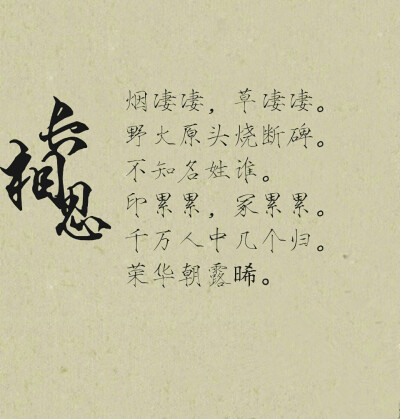 长相思
烟凄凄，草凄凄。
野火原头烧断碑。
不知名姓谁。
印累累，冢累累。
千万人中几个归。
荣华朝露晞。